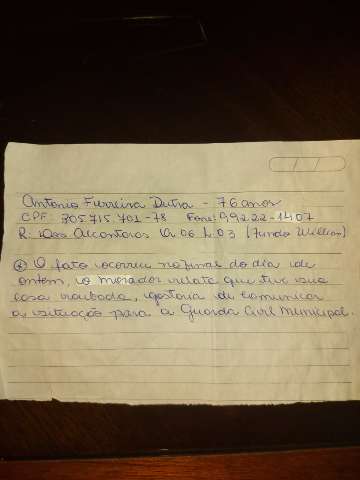 Antonio Ferreira Dutra - 76 anos
CPF: 305.715.701-78 Fone: 99222-1407
R: dos Alcantaras Q.06 L.03 (Fundo Willian)
O fato ocorreu no final do dia de
ontem, o morador relata que tive sua
casa roubada, gostaria de comunicar
a situação para a Guarda Civil Municipal.